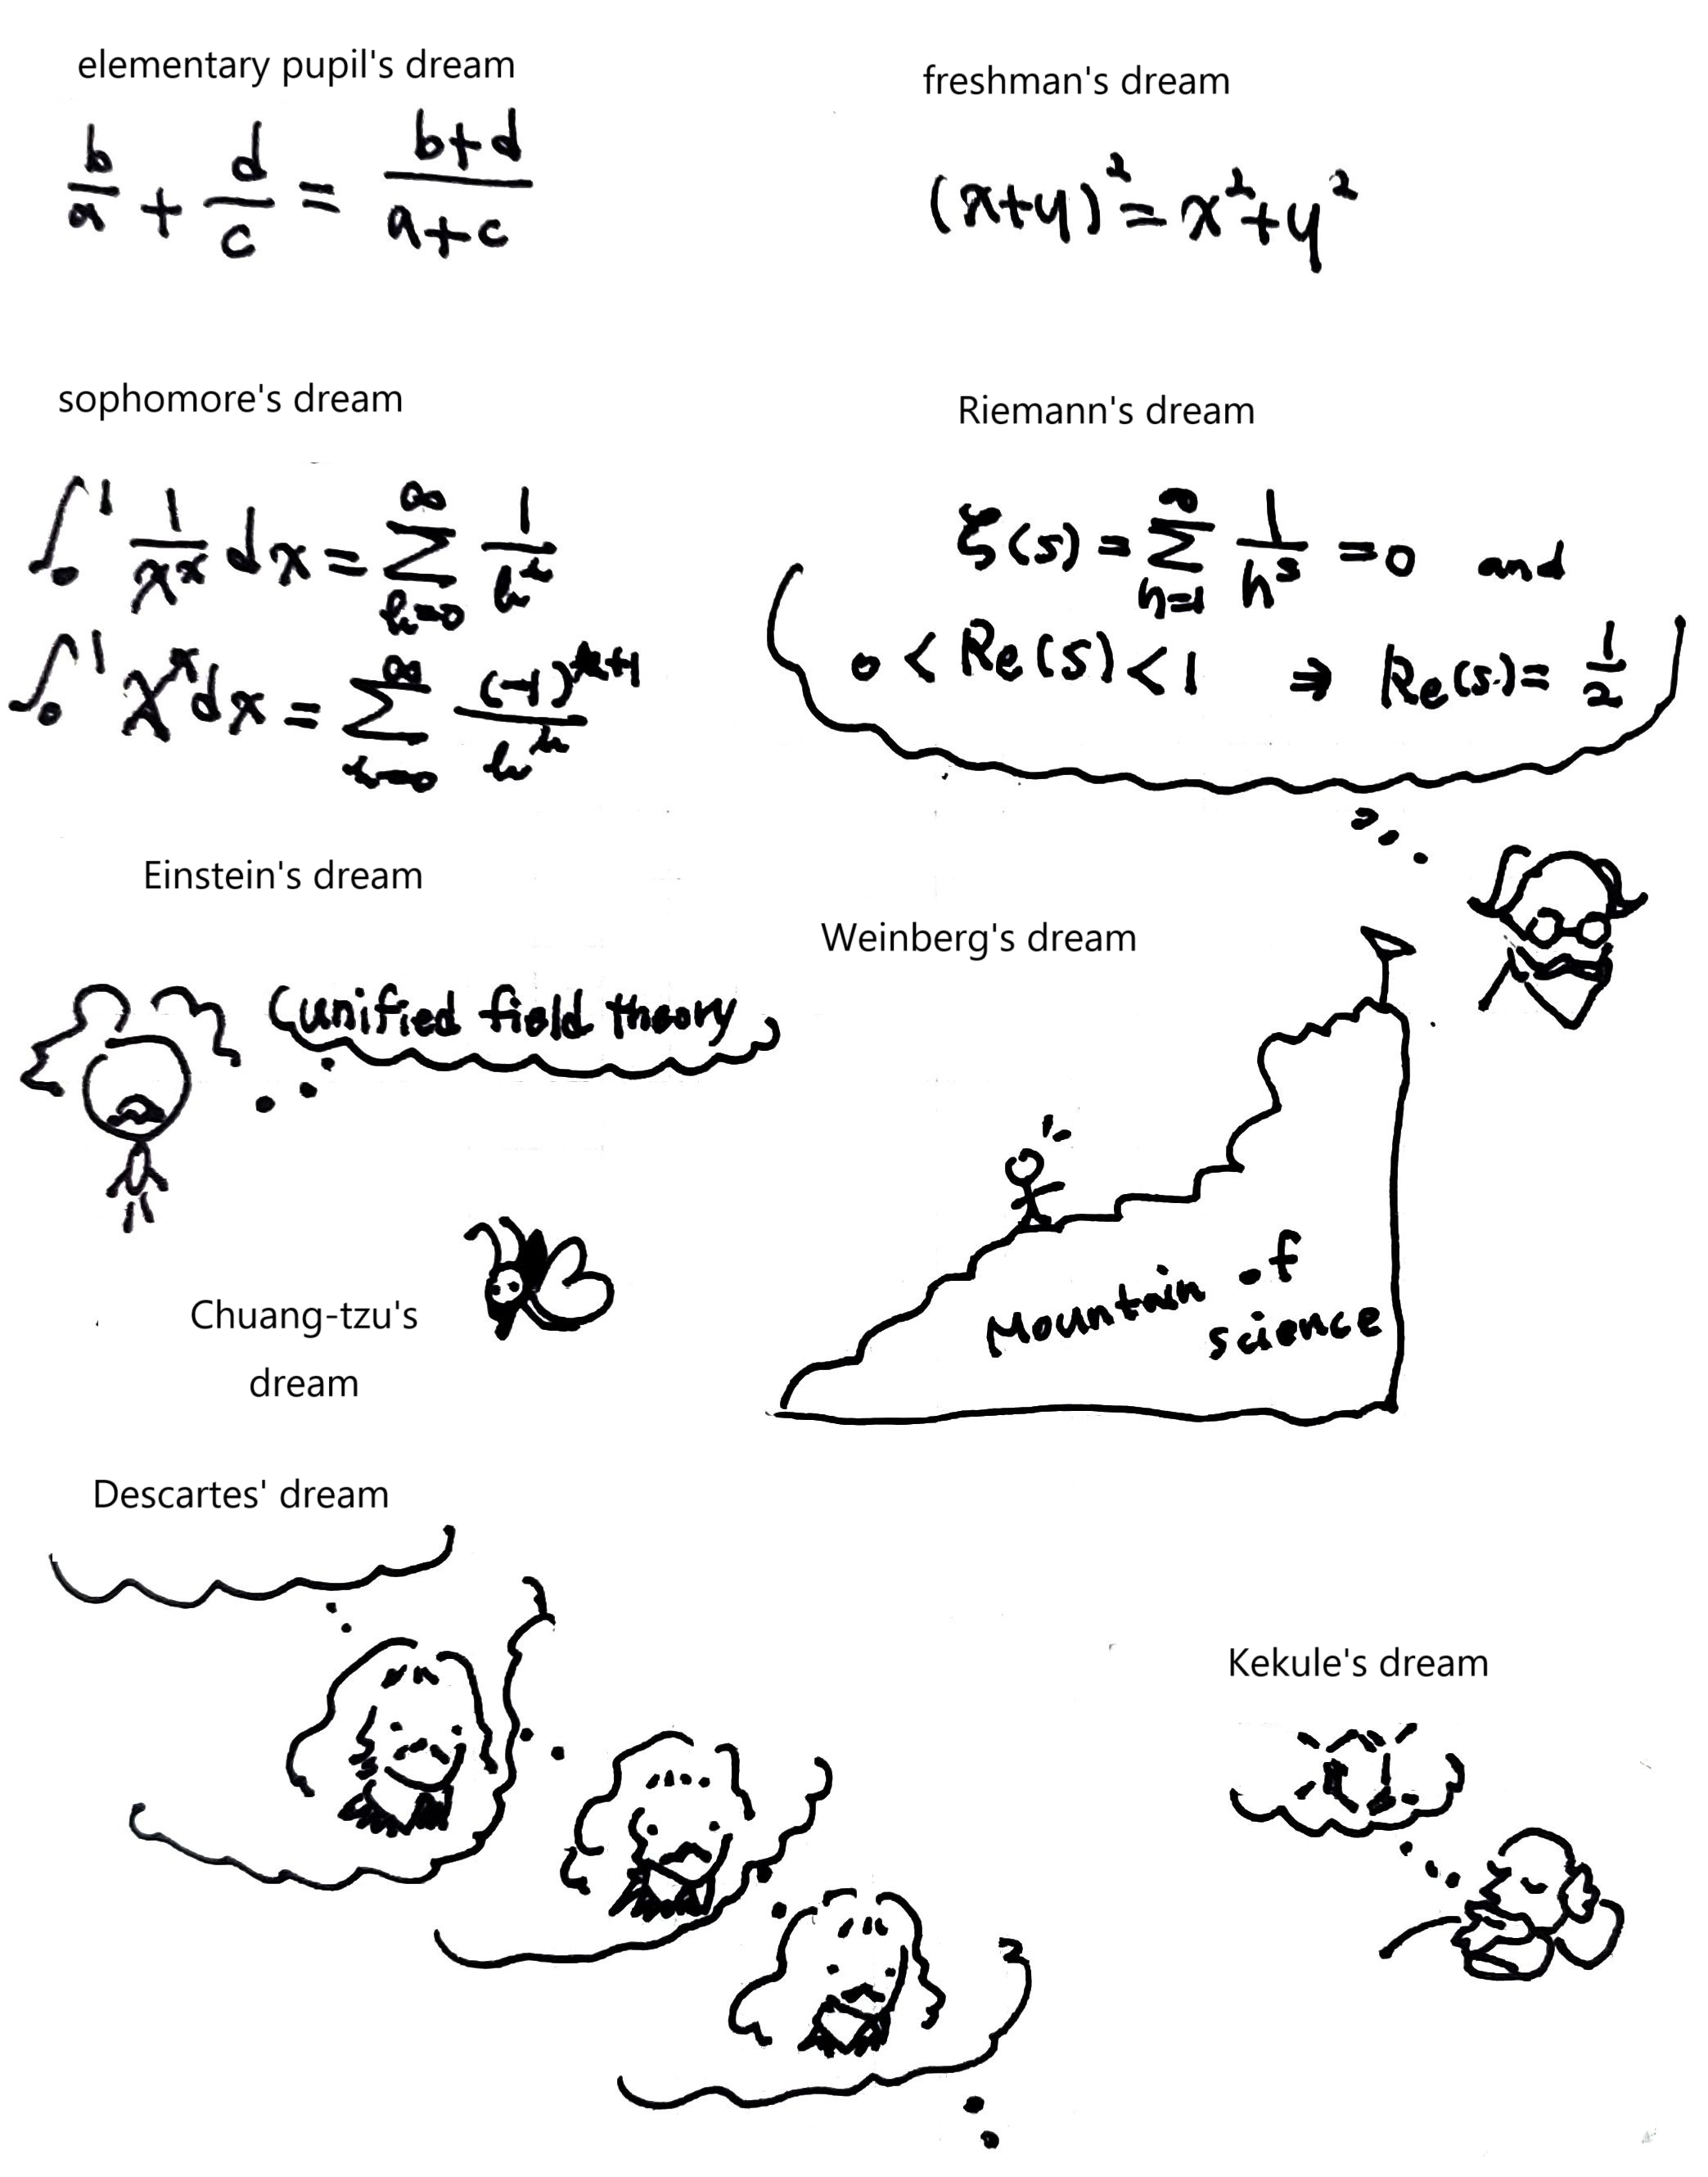 elementary pupil's dream
b/a + d/c = (b+d)/(a+c)
freshman's dream
(x+y)² = x²+y²
sophomore's dream
∫₀¹ 1/xˣ dx = ∑_{k=0}^{∞} 1/kᵏ
∫₀¹ xˣ dx = ∑_{k=0}^{∞} (-1)^{k+1}/kᵏ
Riemann's dream
ζ(s) = ∑_{n=1}^{∞} 1/nˢ = 0 and
0 < Re(s) < 1 ⇒ Re(s) = 1/2
Einstein's dream
unified field theory
Weinberg's dream
Mountain of
science
Chuang-tzu's
dream
Descartes' dream
Kekule's dream